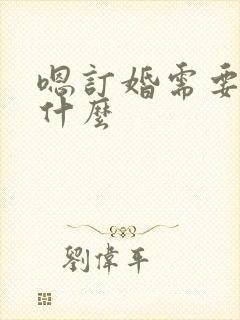 嗯訂婚需要
什麼
劉偉平